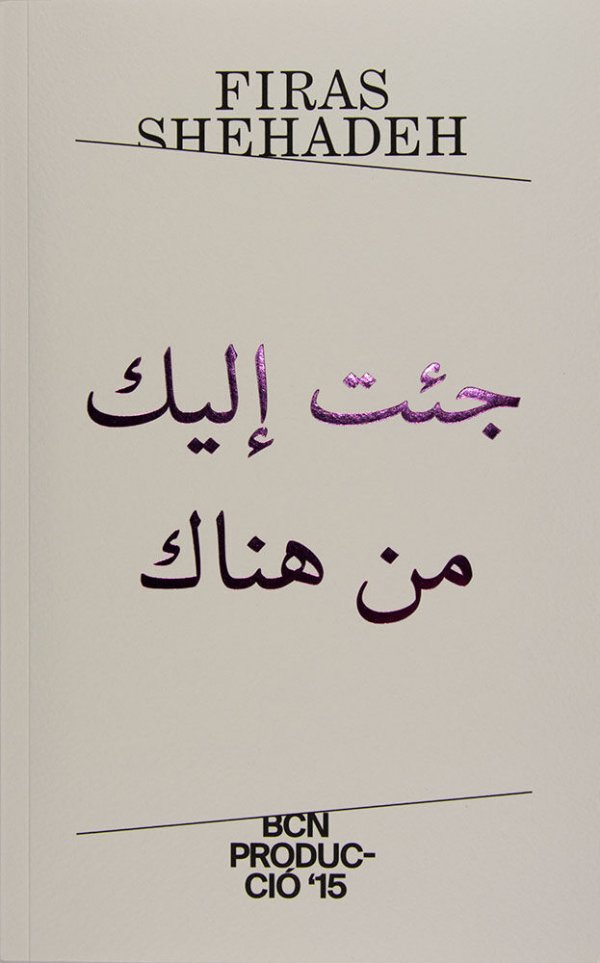 FIRAS
SHEHADEH
جئت إليك
من هناك
BCN
PRODUC-
CIÓ ‘15